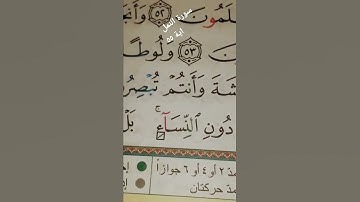 سورة النمل
اية ٥٥
لَمُونَ ﴿٥٢﴾ وَأَنجَ
نَ ﴿٥٣﴾ وَلُوطًا
شَةَ وَأَنتُمْ تُبْصِرُ
دُونِ ٱلنِّسَآءِ ۚ بَلْ
مدّ ٢ أو ٤ أو ٦ جوازاً
مدّ حركتان